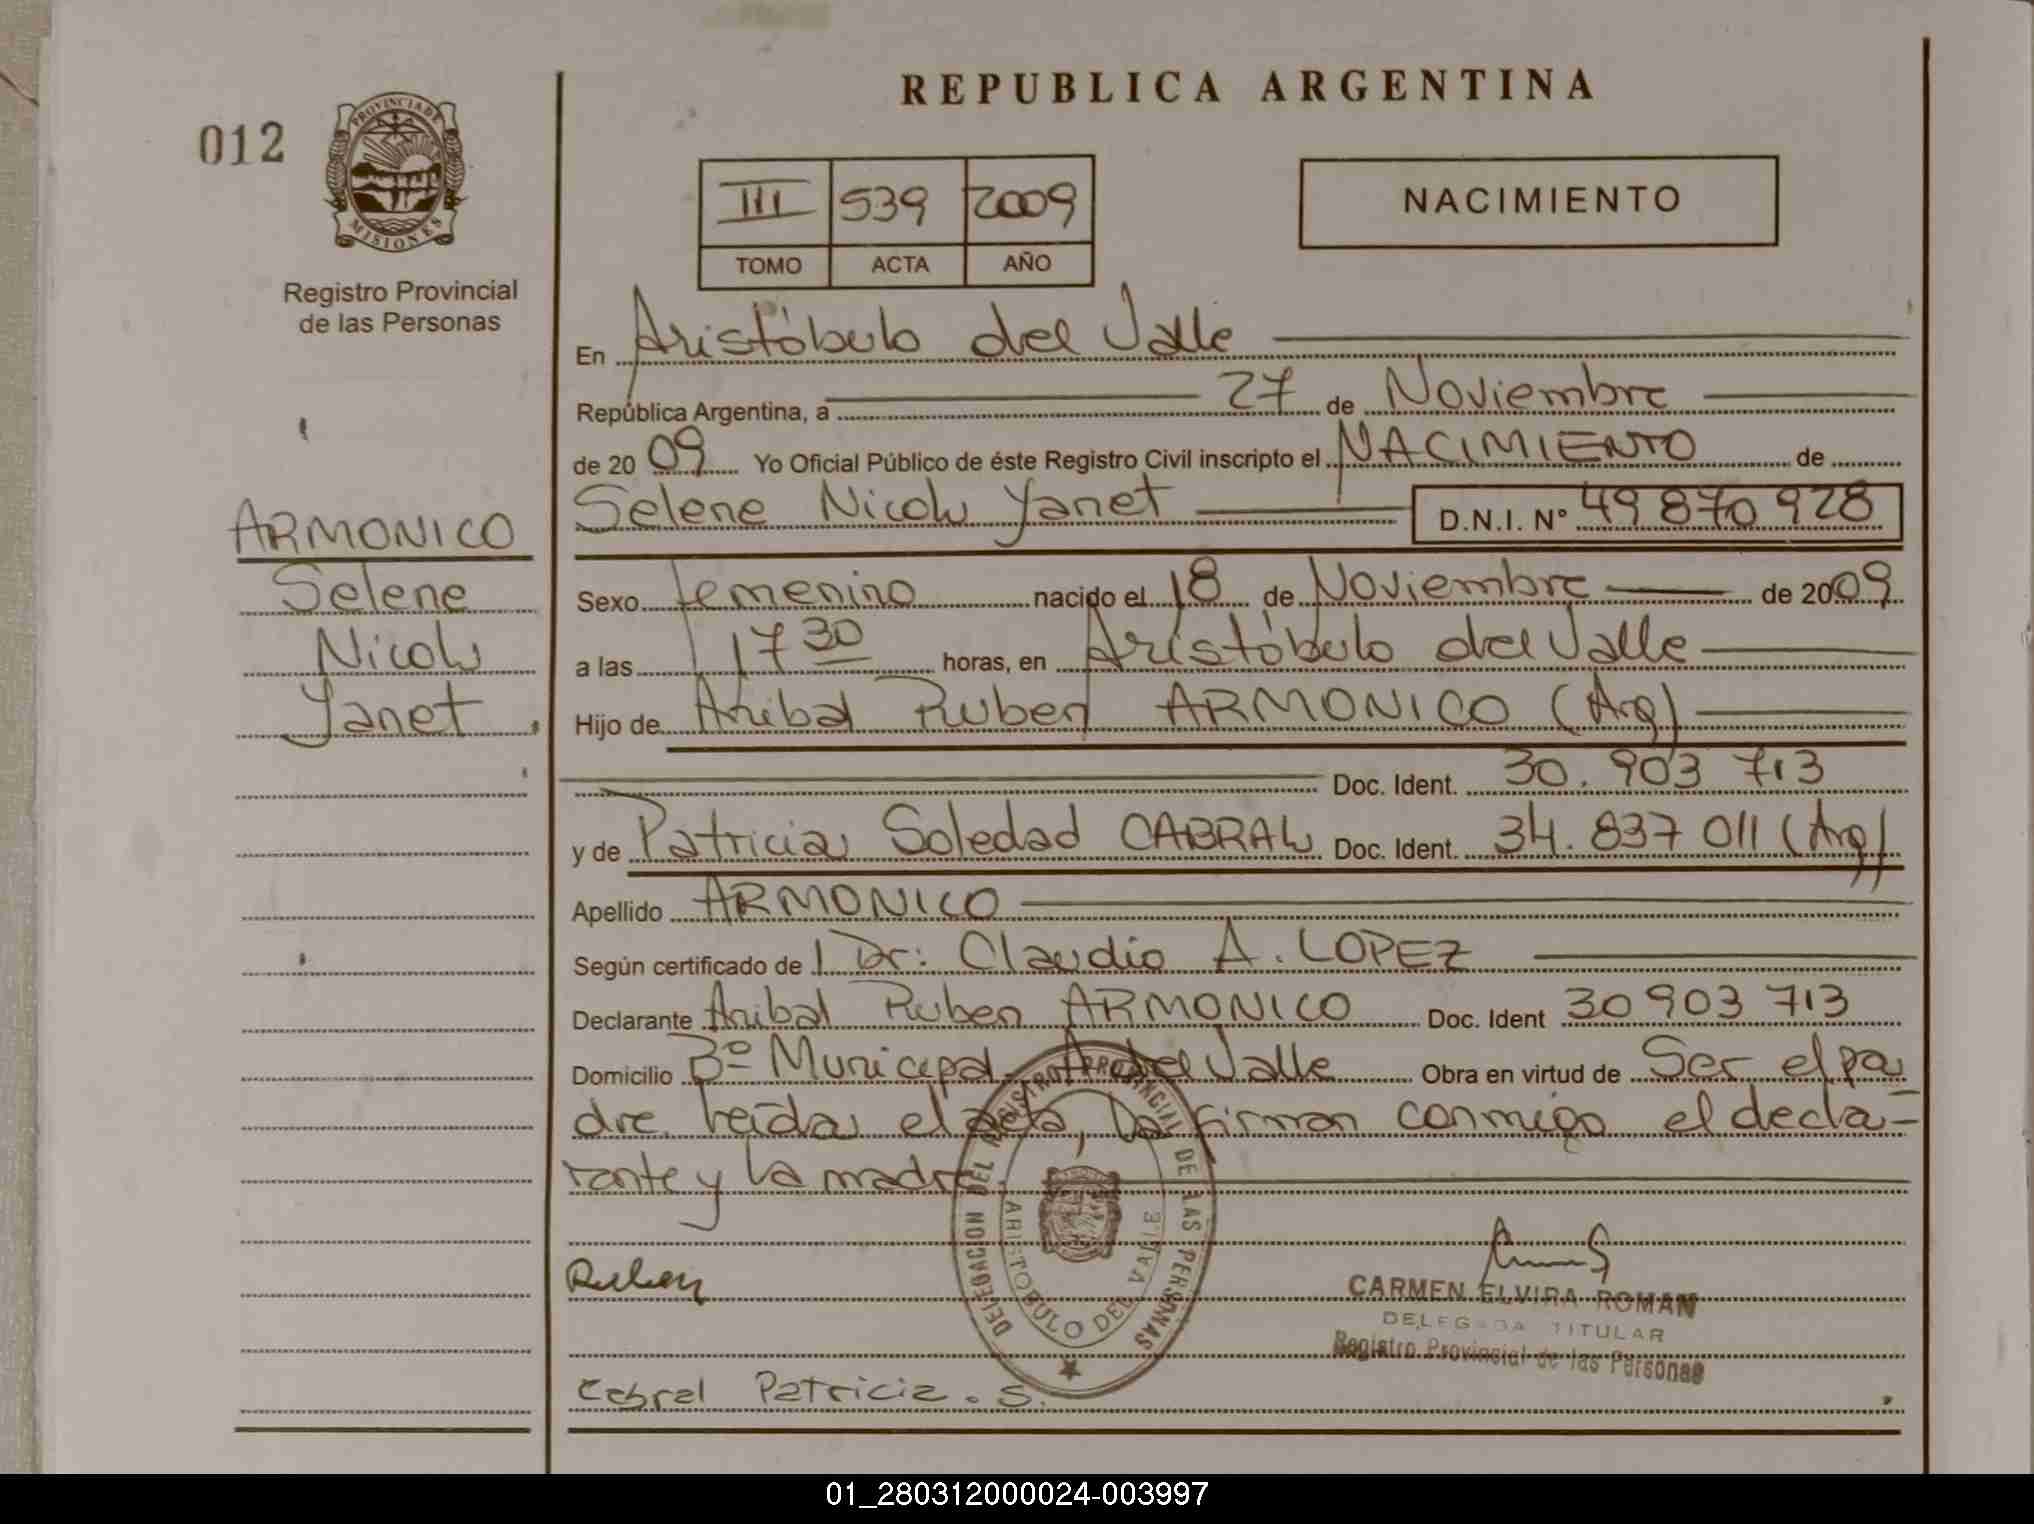 REPUBLICA ARGENTINA
012
PROVINCIA DE
MISIONES
Registro Provincial
de las Personas
III 539 2009
TOMO ACTA AÑO
NACIMIENTO
En Aristóbulo del Valle
República Argentina, a 27 de Noviembre
de 2009 Yo Oficial Público de éste Registro Civil inscripto el NACIMIENTO de
Selene Nicol Yanet D.N.I. Nº 49 870 928
ARMONICO
Selene
Nicol
Yanet
Sexo femenino nacido el 18 de Noviembre de 2009
a las 17 30 horas, en Aristóbulo del Valle
Hijo de Anibal Ruben ARMONICO (Arg)
Doc. Ident. 30.903 713
y de Patricia Soledad CABRAL Doc. Ident. 34.837 011 (Arg)
Apellido ARMONICO
Según certificado de Dr: Claudio A. LOPEZ
Declarante Anibal Ruben ARMONICO Doc. Ident 30 903 713
Domicilio Bº Municipal A del Valle Obra en virtud de Ser el pa
dre. Leída el acta, la firman conmigo el decla-
rante y la madre.
DELEGACION DEL REGISTRO PROVINCIAL DE LAS PERSONAS
ARISTOBULO DEL VALLE
Ruben
CARMEN ELVIRA ROMAN
DELEGADA TITULAR
Registro Provincial de las Personas
Cabral Patricia. S.
01_280312000024-003997